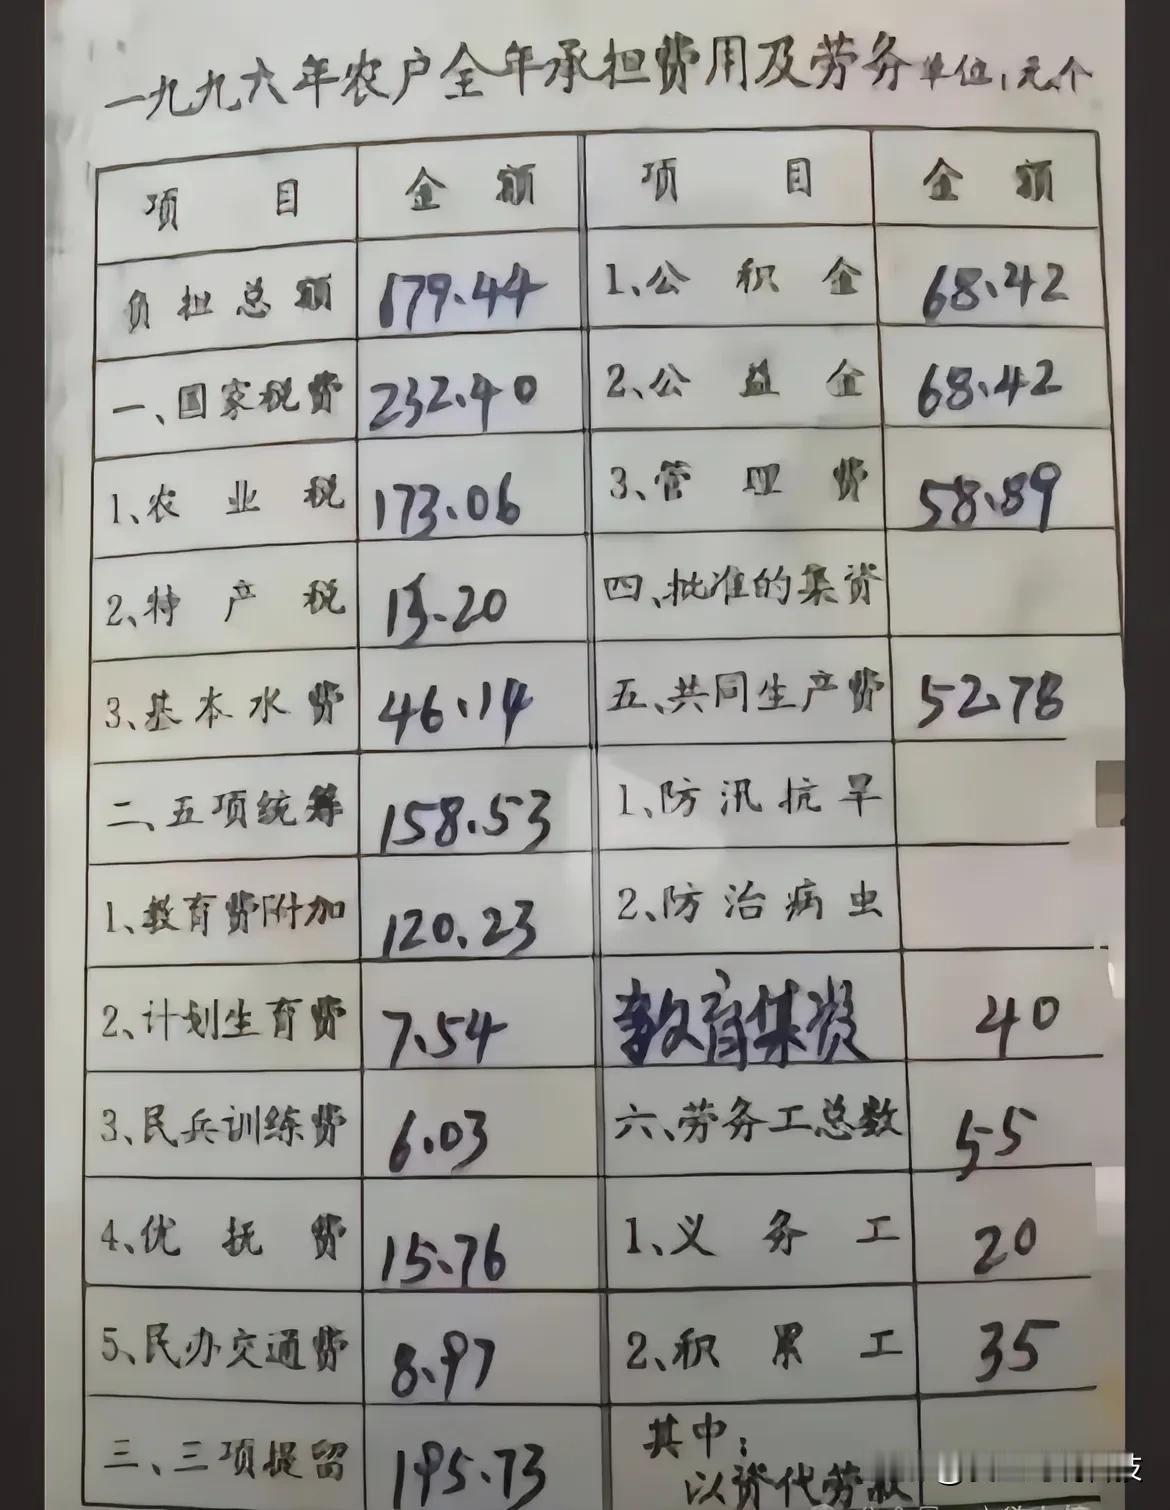 一九九六年农户全年承担费用及劳务 单位：元、个
项 目 金 额 项 目 金 额
负担总额 179.44 1、公积金 68.42
一、国家税费 232.40 2、公益金 68.42
1、农业税 173.06 3、管理费 58.89
2、特产税 13.20 四、批准的集资
3、基本水费 46.14 五、共同生产费 52.78
二、五项统筹 158.53 1、防汛抗旱
1、教育费附加 120.23 2、防治病虫
2、计划生育费 7.54 教育集资 40
3、民兵训练费 6.03 六、劳务工总数 55
4、优抚费 15.76 1、义务工 20
5、民办交通费 8.97 2、积累工 35
三、三项提留 195.73 其中：
以资代劳款